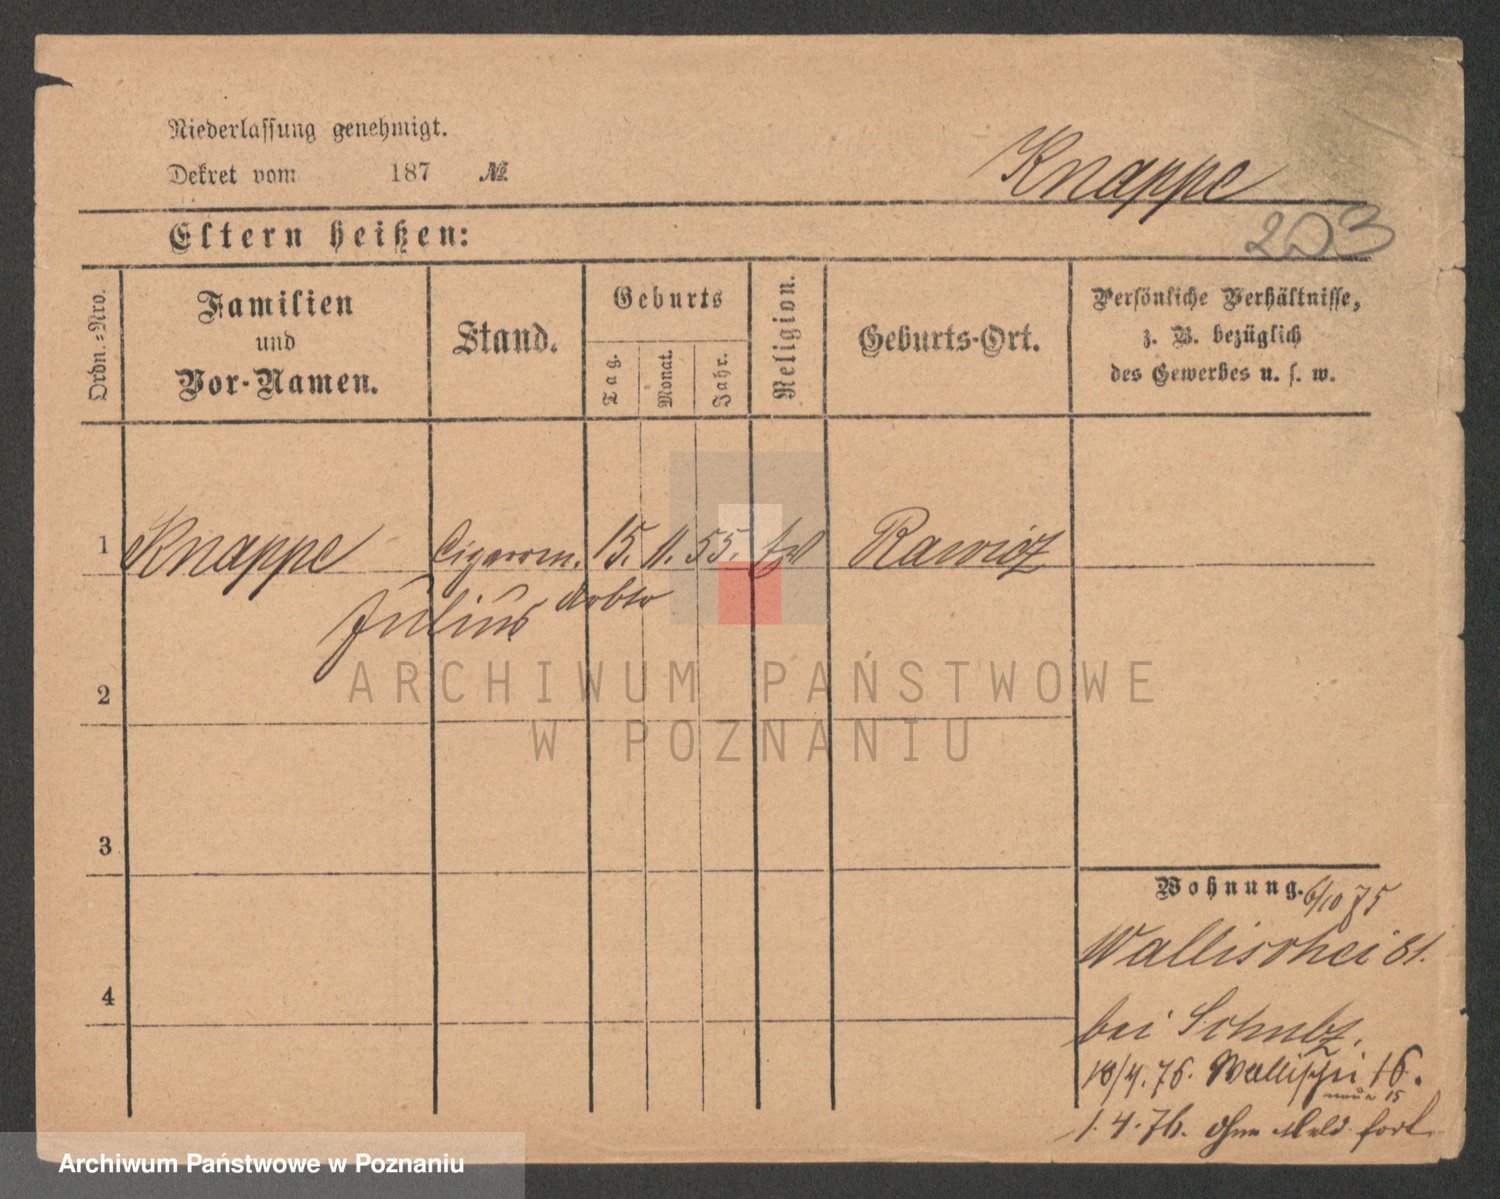 Niederlassung genehmigt.
Dekret vom 187 №
Knappe
203
Eltern heißen:
Ordn.-Nro.
Familien
und
Vor-Namen.
Stand.
Geburts
Tag.
Monat.
Jahr.
Religion.
Geburts-Ort.
Persönliche Verhältnisse,
z. B. bezüglich
des Gewerbes u. s. w.
1 Knappe Cigarren. 15. 11. 55. Rawicz
Julius Arbtr
2
3
4
Wohnung. 6/10 75
Wallischei 81.
bei Schulz.
10/4. 76. Wallischei 16.
1. 4. 76. ohne Meld fort
ARCHIWUM PAŃSTWOWE
W POZNANIU
Archiwum Państwowe w Poznaniu